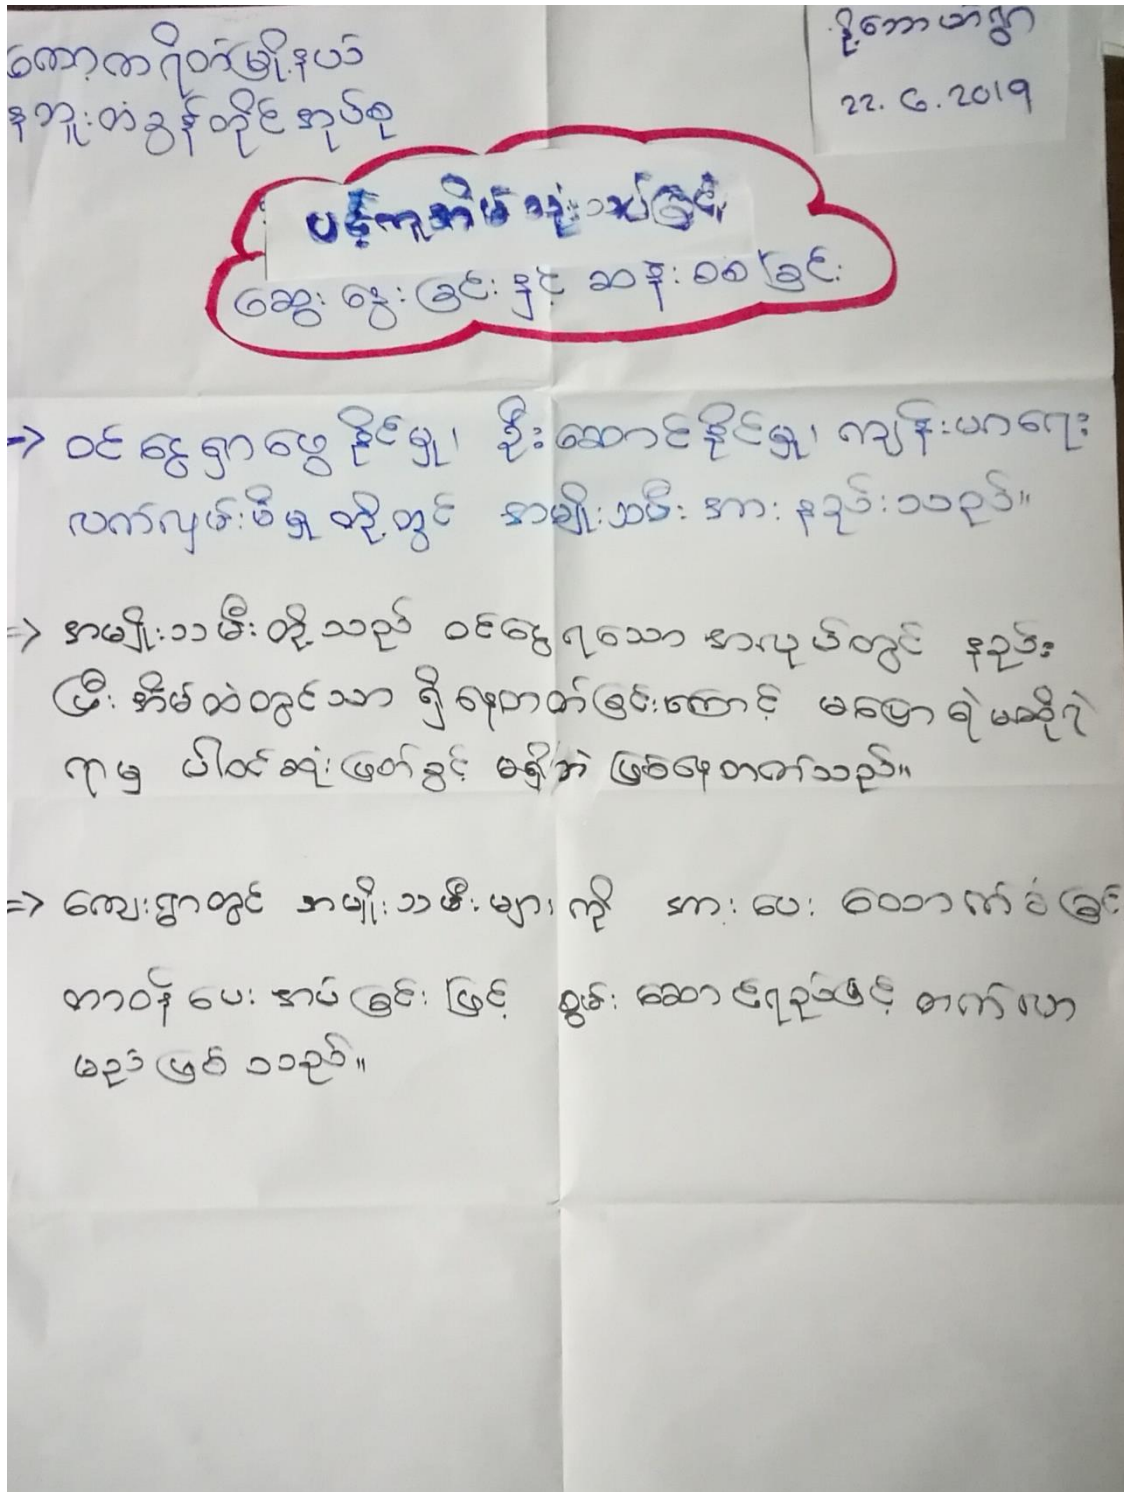 ကော့ကရိတ်မြို့နယ်
နဘူးတံခွန်တိုင်အုပ်စု
22.6.2019
ဆွေးနွေးခြင်းနှင့် ဆန်းစစ်ခြင်း
→ ဝင်ငွေရှာဖွေနိုင်မှု၊ ဦးဆောင်နိုင်မှု၊ ကျန်းမာရေး
လက်လှမ်းမီမှုတို့တွင် အမျိုးသမီး အား နည်းသည်။
⇒ အမျိုးသမီးတို့သည် ဝင်ငွေရသော အလုပ်တွင် နည်း
ပြီး အိမ်ထဲတွင်သာ ရှိနေတတ်ခြင်းကြောင့် မပြောရဲမဆိုရဲ
ရာမှ ပါဝင်ဆုံးဖြတ်ခွင့် မရှိဘဲ ဖြစ်နေတတ်သည်။
⇒ ကျေးရွာတွင် အမျိုးသမီးများကို အားပေးထောက်ခံခြင်း
တာဝန်ပေးအပ်ခြင်းဖြင့် စွမ်းဆောင်ရည်မြင့်တက်လာ
မည်ဖြစ်သည်။